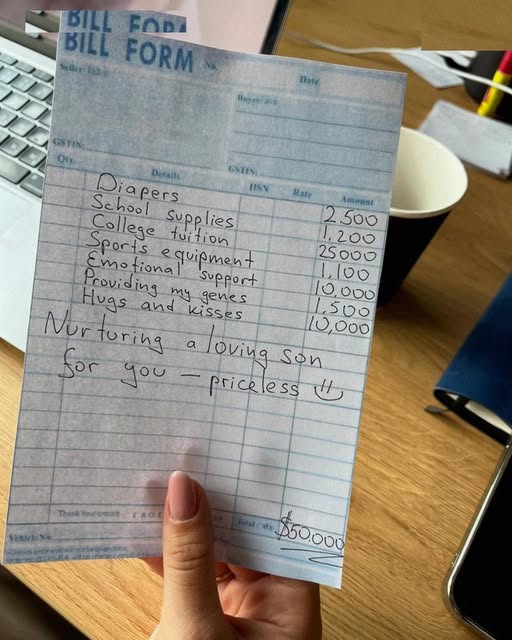 BILL FORM
BILL FORM No.
Date
Seller
Buyer
GSTIN:
GSTIN:
Qty. Details HSN Rate Amount
Diapers 2,500
School supplies 1,200
College tuition 25000
Sports equipment 1,100
Emotional support 10,000
Providing my genes 1,500
Hugs and kisses 10,000
Nurturing a loving son
for you – priceless
Total
$50,000
Vehicle No